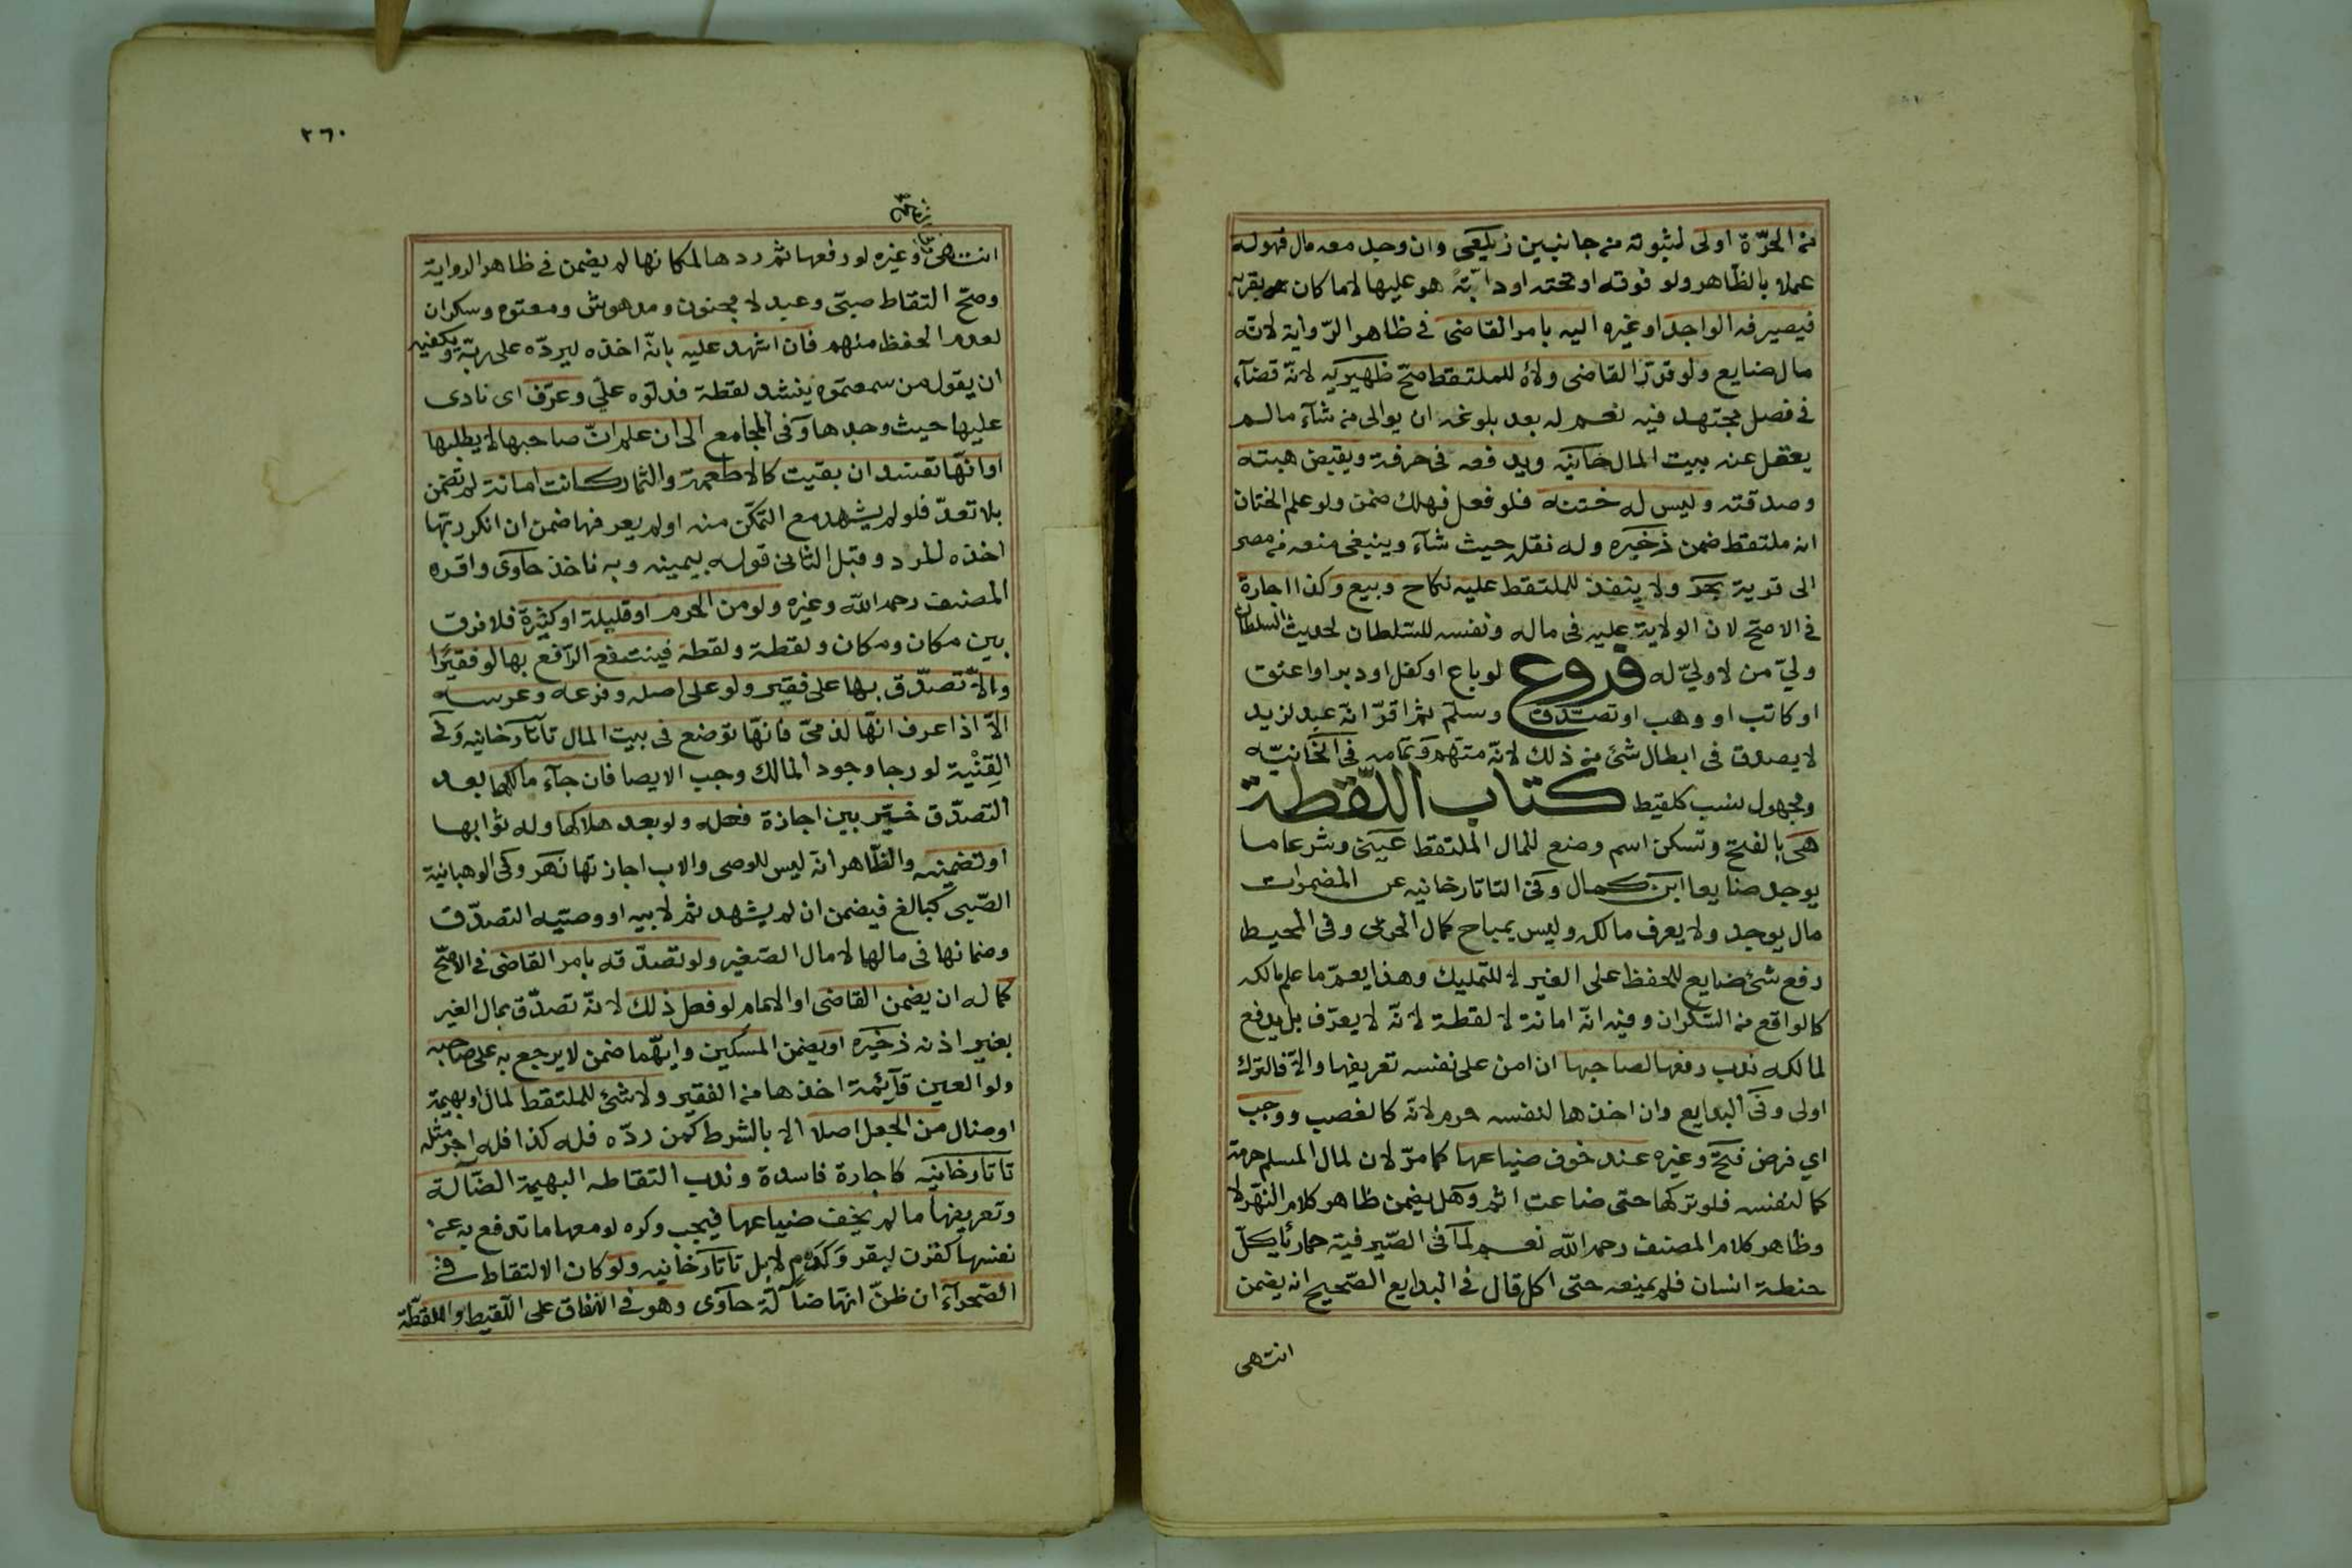 من الحرّة اولى لثبوته من جانبين زيلعى وان وجد معه مال فهو له
عملا بالظّاهر ولو فوقه او تحته او دابّةً هو عليها لا ما كان بقربه
فيصرفه الواجد او غيره اليه بامر القاضى فى ظاهر الرّواية لانه
مال ضايع ولو قرّر القاضى ولاؤه للملتقط صحّ ظهيريه لانّه قضآء
فى فصل مجتهد فيه نعم له بعد بلوغه ان يوالى من شآء ما لم
يعقل عنه بيت المال خانيه ويدفعه فى حرفة ويقبض هبته
وصدقته وليس له ختنه فلو فعل فهلك ضمن ولو علم الختان
انه ملتقط ضمن ذخيره وله نقله حيث شآء وينبغى منعه من مصر
الى قرية بحر ولا ينفذ للملتقط عليه نكاح وبيع وكذا اجارة
فى الاصحّ لان الولاية عليه فى ماله ونفسه للسّلطان لحديث السلطان
وليّ من لا وليّ له فروع لو باع او كفل او دبر او اعتق
او كاتب او وهب او تصدق وسلّم ثم اقرّ انه عبد لزيد
لا يصدق فى ابطال شئ من ذلك لانّه متهم وتمامه فى الخانيّه
ومجهول نسب كلقيط كتاب اللّقطة
هى بالفتح وتسكن اسم وضع للمال الملتقط عينى وشرعا ما
يوجد ضايعا ابن كمال وفى التاتارخانيه عن المضمرات
مال يوجد ولا يعرف مالكه وليس بمباح كمال الحربى وفى المحيط
رفع شئ ضايع للحفظ على الغير لا للتمليك وهذا يعمّ ما علم مالكه
كالواقع من السّكران وفيه انّه امانة لا لقطة لانّه لا يعرّف بل يدفع
لمالكه ندب رفعها لصاحبها ان امن على نفسه تعريفها والّا فالترك
اولى وفى البدايع وان اخذها لنفسه حرم لانّه كالغصب ووجب
اي فرض فتح وغيره عند خوف ضياعها كما مرّ لان لمال المسلم حرمة
كما لنفسه فلو تركها حتى ضاعت اثم وهل يضمن ظاهر كلام النّهر لا
وظاهر كلام المصنف رحمه اللّه نعم لما فى الصّيرفية حمار يأكل
حنطة انسان فلم يمنعه حتى اكل قال فى البدايع الصّحيح انه يضمن
انتهى
٢٦٠
انتهى وغيره لو رفعها ثم ردها لمكانها لم يضمن فى ظاهر الرواية
وصحّ التقاط صبىّ وعبد لا مجنون ومدهوش ومعتوه وسكران
لعدم الحفظ منهم فان اشهد عليه بانّه اخذه ليردّه على ربّه ويكفيه
ان يقول من سمعتموه ينشد لقطة فدلّوه عليّ وعرّف اى نادى
عليها حيث وجدها وفى المجامع الى ان علم انّ صاحبها لا يطلبها
او انّها تفسد ان بقيت كالاطعمة والثمار كانت امانة لم تضمن
بلا تعدّ فلو لم يشهد مع التمكّن منه او لم يعرفها ضمن ان انكر ربّها
اخذه للرد وقبل الثانى قوله بيمينه وبه ناخذ حاوى واقره
المصنف رحمه اللّه وغيره ولو من الحرم او قليلة او كثيرة فلا فرق
بين مكان ومكان ولقطة ولقطة فينتفع الرّافع بها لو فقيرًا
والّا تصدّق بها على فقير ولو على اصله وفرعه وعرسه
الّا اذا عرف انّها لذمىّ فانّها توضع فى بيت المال تاتارخانيه وفى
القِنْية لو رجا وجود المالك وجب الايصا فان جآء مالكها بعد
التصدّق خيّر بين اجازة فعله ولو بعد هلاكها وله ثوابها
او تضمينه والظّاهر انّه ليس للوصى والاب اجازتها نهر وفى الوهبانية
الصّبى كبالغ فيضمن ان لم يشهد ثم لابيه او وصيّه التصدّق
وضمانها فى مالهما لا مال الصّغير ولو تصدّقه بامر القاضى فى الاصحّ
كما له ان يضمن القاضى او الامام لو فعل ذلك لانّه تصدّق بمال الغير
بغير اذنه ذخيره او يضمن المسكين وايّهما ضمن لا يرجع به على صاحبه
ولو العين قآئمة اخذها من الفقير ولا شئ للملتقط لمال او بهيمة
او ضال من الجعل اصلا الا بالشرط كمن ردّه فله كذا فله اجر مثله
تاتارخانيه كاجارة فاسدة وندب التقاط البهيمة الضّآلة
وتعريفها ما لم يخف ضياعها فيجب وكره لو معها ما تدفع به عن
نفسها كقرن لبقر وكدم لابل تاتارخانيه ولو كان الالتقاط فى
الصّحرآء ان ظنّ انها ضالّة حاوى وهو فى الانفاق على اللّقيط واللقطة